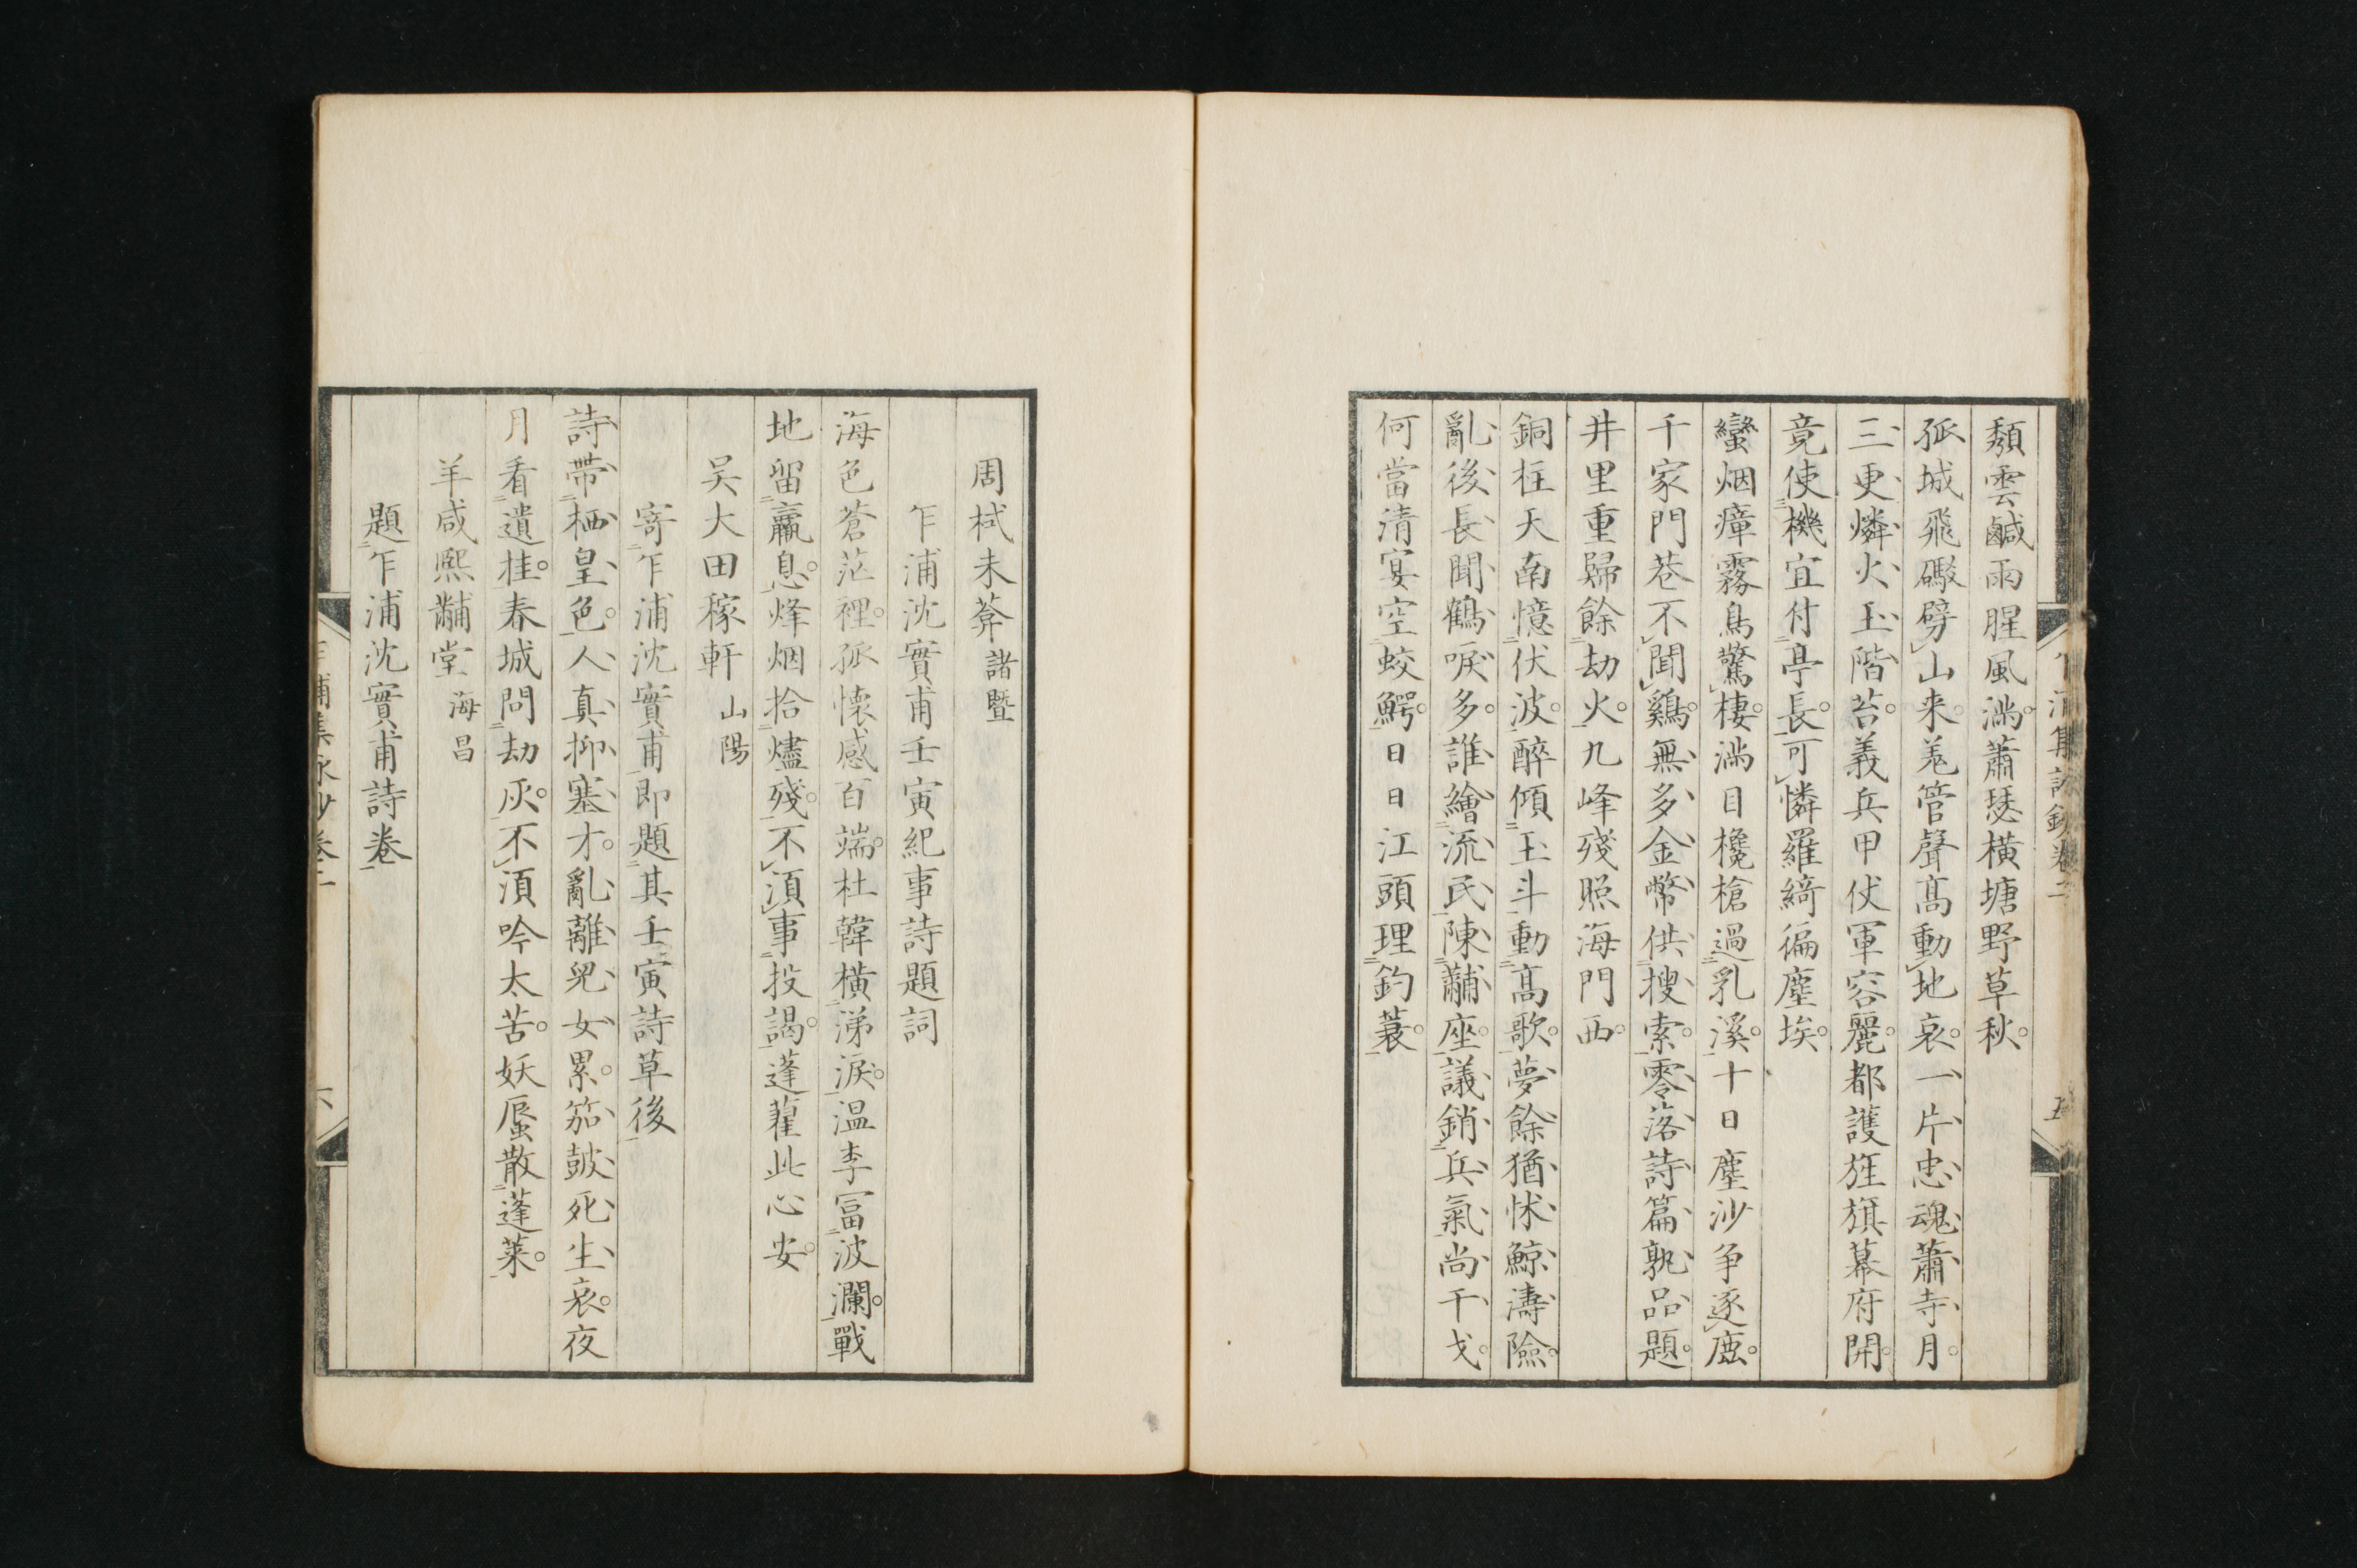 乍浦集詠鈔卷二
五
頽雲鹹雨腥風満蕭瑟横塘野草秋
孤城飛礮劈山来羗管聲髙動地哀一片忠魂蕭寺月
三更燐火玉階苔義兵甲仗軍容麗都護旌旗幕府開
竟使機宜付亭長可憐羅綺徧塵埃
蠻烟瘴霧鳥驚棲満目欃槍過乳溪十日塵沙争逐鹿
千家門巷不聞鷄無多金幣供搜索零落詩篇孰品題
井里重歸餘劫火九峰殘照海門西
銅柱天南憶伏波醉傾玉斗動髙歌夢餘猶怵鯨濤險
亂後長聞鶴唳多誰繪流民陳黼座議銷兵氣尚干戈
何當清宴空蛟鰐日日江頭理釣蓑
周栻未葊諸暨
乍浦沈實甫壬寅紀事詩題詞
海色蒼茫裡孤懷感百端杜韓横涕淚温李冨波瀾戰
地留羸息烽烟拾燼殘不湏事投謁蓬藋此心安
吴大田稼軒山陽
寄乍浦沈實甫即題其壬寅詩草後
詩帶栖皇色人真抑塞才亂離兒女累笳皷死生哀夜
月看遺挂春城問劫灰不湏吟太苦妖蜃散蓬莱
羊咸熙黼堂海昌
題乍浦沈實甫詩卷
乍浦集詠鈔卷二
六